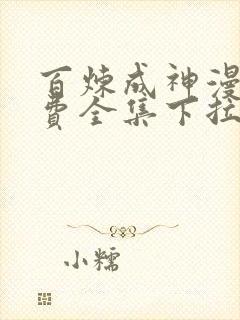 百炼成神漫
费全集下拉
小糯